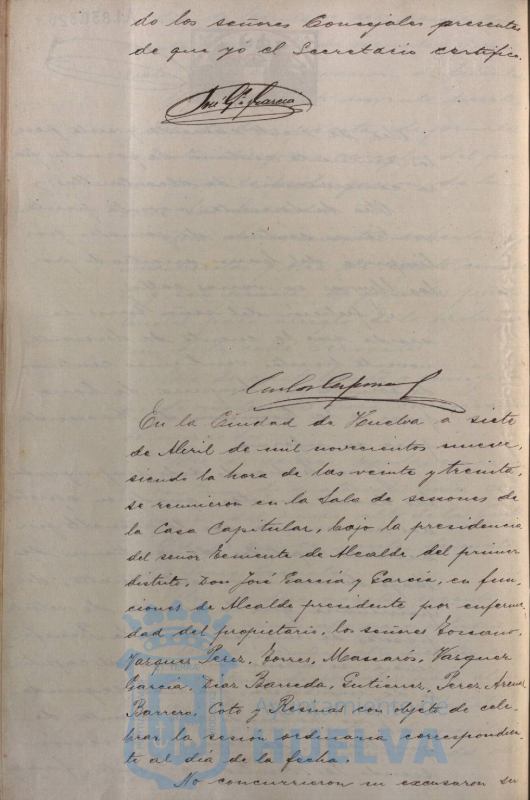 do los señores Concejales presentes
de que yo el Secretario certifico.
José Ga. García
Carlos
En la Ciudad de Huelva a siete
de Abril de mil novecientos nueve,
siendo la hora de las veinte y treinta,
se reunieron en la Sala de sesiones de
la Casa Capitular, bajo la presidencia
del señor Teniente de Alcalde del primer
distrito, Don José García y García, en fun-
ciones de Alcalde presidente por enferme-
dad del propietario, los señores Toscano,
Vazquez Perez, Torres, Mascarós, Vazquez
García, Diaz Barreda, Gutierrez, Perez
Barrero, Coto y Resinas con objeto de cele-
brar la sesión ordinaria correspondien-
te al día de la fecha.
No concurrieron ni excusaron su
Ayuntamiento de
HUELVA